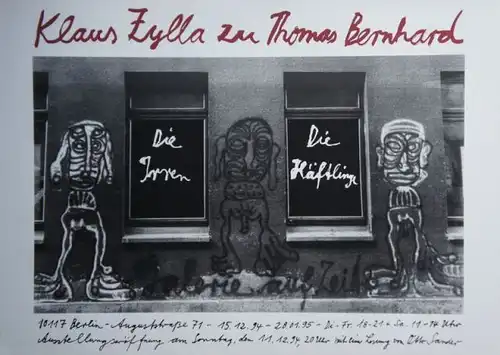 Klaus Zylla zu Thomas Bernhard
Die
Irren
Die
Häftlinge
Galerie auf Zeit
10117 Berlin - Auguststraße 71 - 15.12.94 - 28.01.95 - Di - Fr. 18-21 - Sa. 11-14 Uhr
Ausstellungseröffnung am Sonntag, den 11.12.94, 20 Uhr mit einer Lesung von Otto Sander